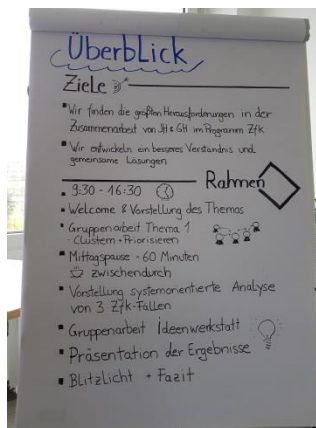 Überblick
Ziele
Wir finden die größten Herausforderungen in der
Zusammenarbeit von JH & GH im Programm ZfK
Wir entwickeln ein besseres Verständnis und
gemeinsame Lösungen
Rahmen
9:30 - 16:30
Welcome & Vorstellung des Themas
Gruppenarbeit Thema 1
- Clustern + Priorisieren
Mittagspause - 60 Minuten
zwischendurch
Vorstellung systemorientierte Analyse
von 3 ZfK-Fällen
Gruppenarbeit Ideenwerkstatt
Präsentation der Ergebnisse
Blitzlicht + Fazit